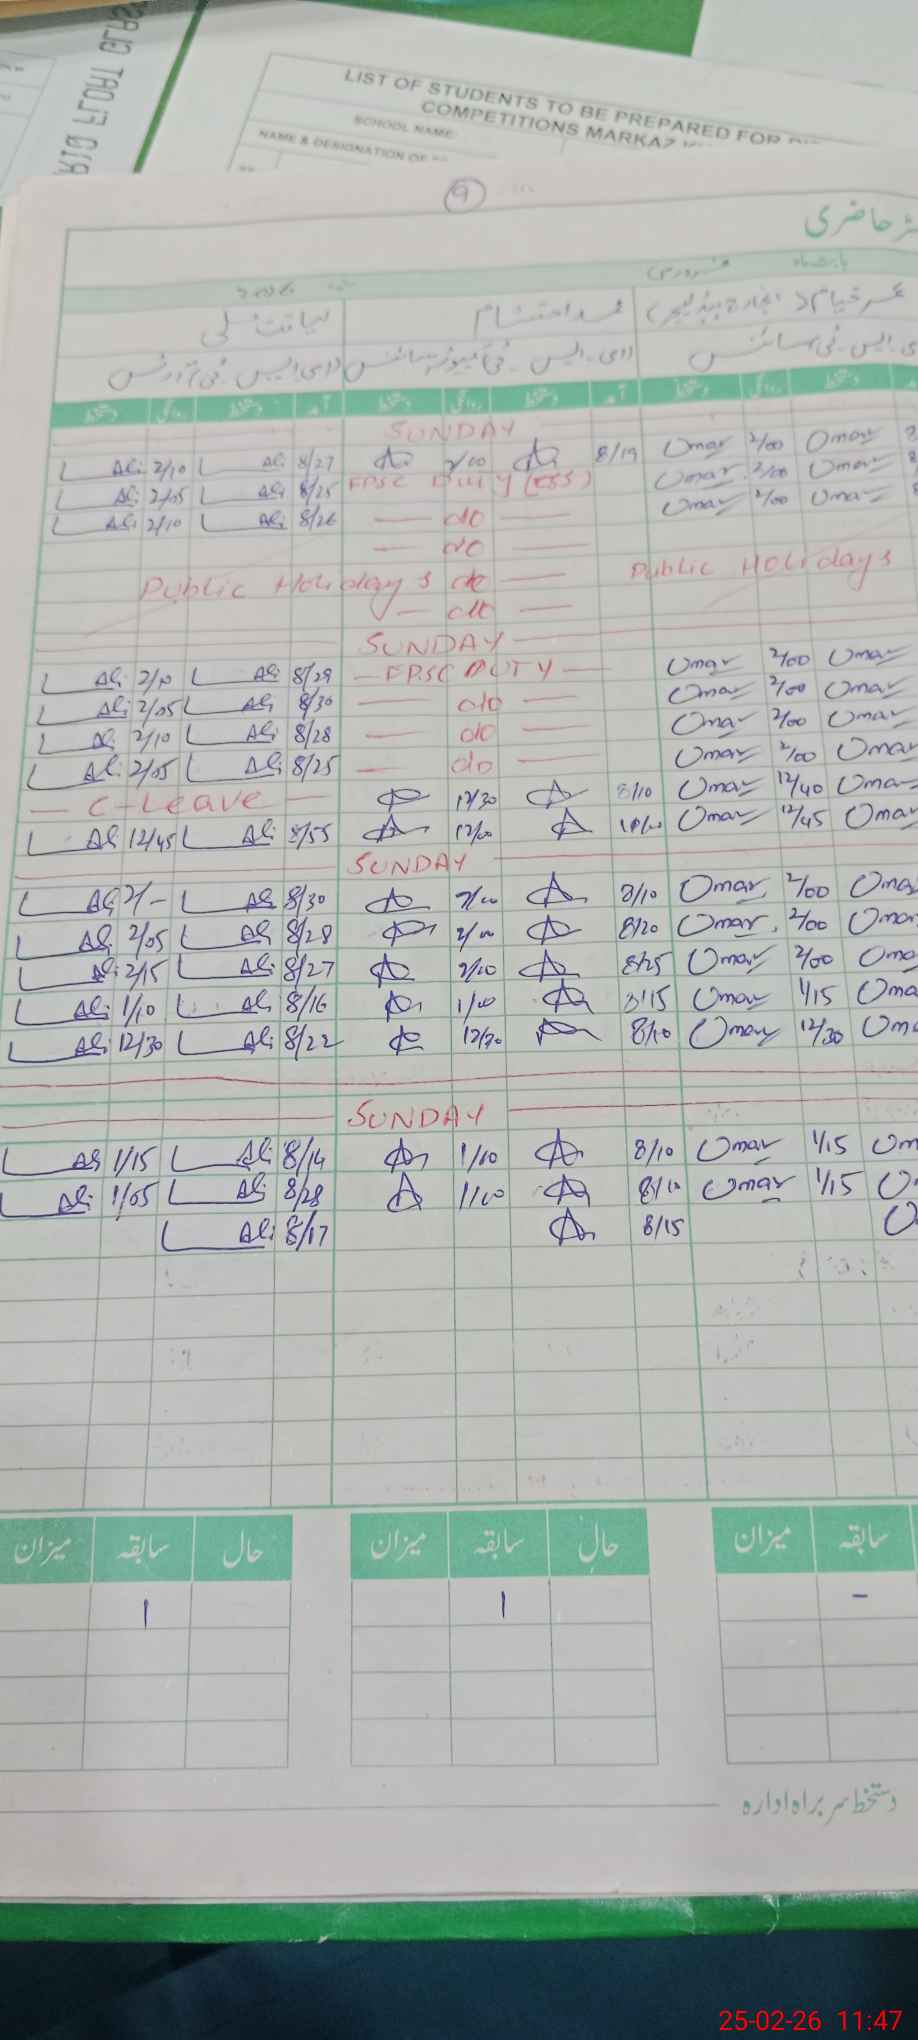 LIST OF STUDENTS TO BE PREPARED FOR
COMPETITIONS MARKAZ
SCHOOL NAME:
NAME & DESIGNATION OF
9
حاضری
بابت ماہ فروری 2026
عمر خیام (انچارج ہیڈ ٹیچر) محمد احتشام لیاقت علی
ایس۔ٹی سائنس (ڈی۔ایس۔ٹی کمپیوٹر سائنس (ڈی ایس۔ٹی آرٹس
آمد دستخط روانگی دستخط آمد دستخط روانگی دستخط
SUNDAY
Ali 2/10 Ali 8/27 2/00 8/19 Omar 2/00 Omar
Ali 2/05 Ali 8/25 FPSC Duty (CSS) Omar 2/00 Omar
Ali 2/10 Ali 8/26 — do — Omar 2/00 Omar
— do —
Public Holidays do — Public Holidays
— do —
SUNDAY
Ali 2/10 Ali 8/29 — FPSC DUTY — Omar 2/00 Omar
Ali 2/05 Ali 8/30 — do — Omar 2/00 Omar
Ali 2/10 Ali 8/28 — do — Omar 2/00 Omar
Ali 2/05 Ali 8/25 — do — Omar 2/00 Omar
— C-Leave — 12/30 8/10 Omar 12/40 Omar
Ali 12/45 Ali 8/55 12/00 Omar 12/45 Omar
SUNDAY
Ali 2/- Ali 8/30 2/00 8/10 Omar 2/00 Omar
Ali 2/05 Ali 8/28 2/00 8/20 Omar 2/00 Omar
Ali 2/15 Ali 8/27 2/00 8/25 Omar 2/00 Omo
Ali 1/10 Ali 8/16 1/00 8/15 Omar 1/15 Oma
Ali 12/30 Ali 8/22 12/30 8/10 Omar 12/30 Om
SUNDAY
Ali 1/15 Ali 8/14 1/00 8/10 Omar 1/15 Om
Ali 1/05 Ali 8/28 1/00 8/10 Omar 1/15 O
Ali 8/17 8/15 O
سابقہ میزان حال سابقہ میزان حال سابقہ میزان
- 1 1
دستخط سربراہ ادارہ
25-02-26 11:47